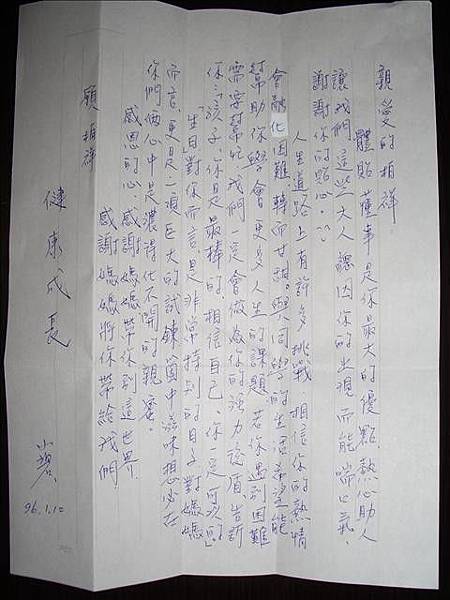 親愛的柏祥
體貼懂事是你最大的優點.熱心助人
讓我們這些大人總因你的出現而能喘口氣.
謝謝你的貼心.^^
人生道路上有許多挑戰.相信你的熱情
會融化困難轉而甘甜.與同學的生活希望能
幫助你學會更多人生的課題.若你遇到困難
需要幫忙.我們一定會做為你的強力後盾.告訴
你:孩子.你是最棒的.相信自己.你一定可以的!
「生日」對你而言是非常特別的日子.對媽媽
而言.更是一項巨大的試鍊.箇中滋味想必在
你們倆心中是濃得化不開的親蜜.
感恩的心.感謝媽媽帶你到這世界.
感謝媽媽將你帶給我們.
願柏祥
健康成長
小碧.
96.1.10